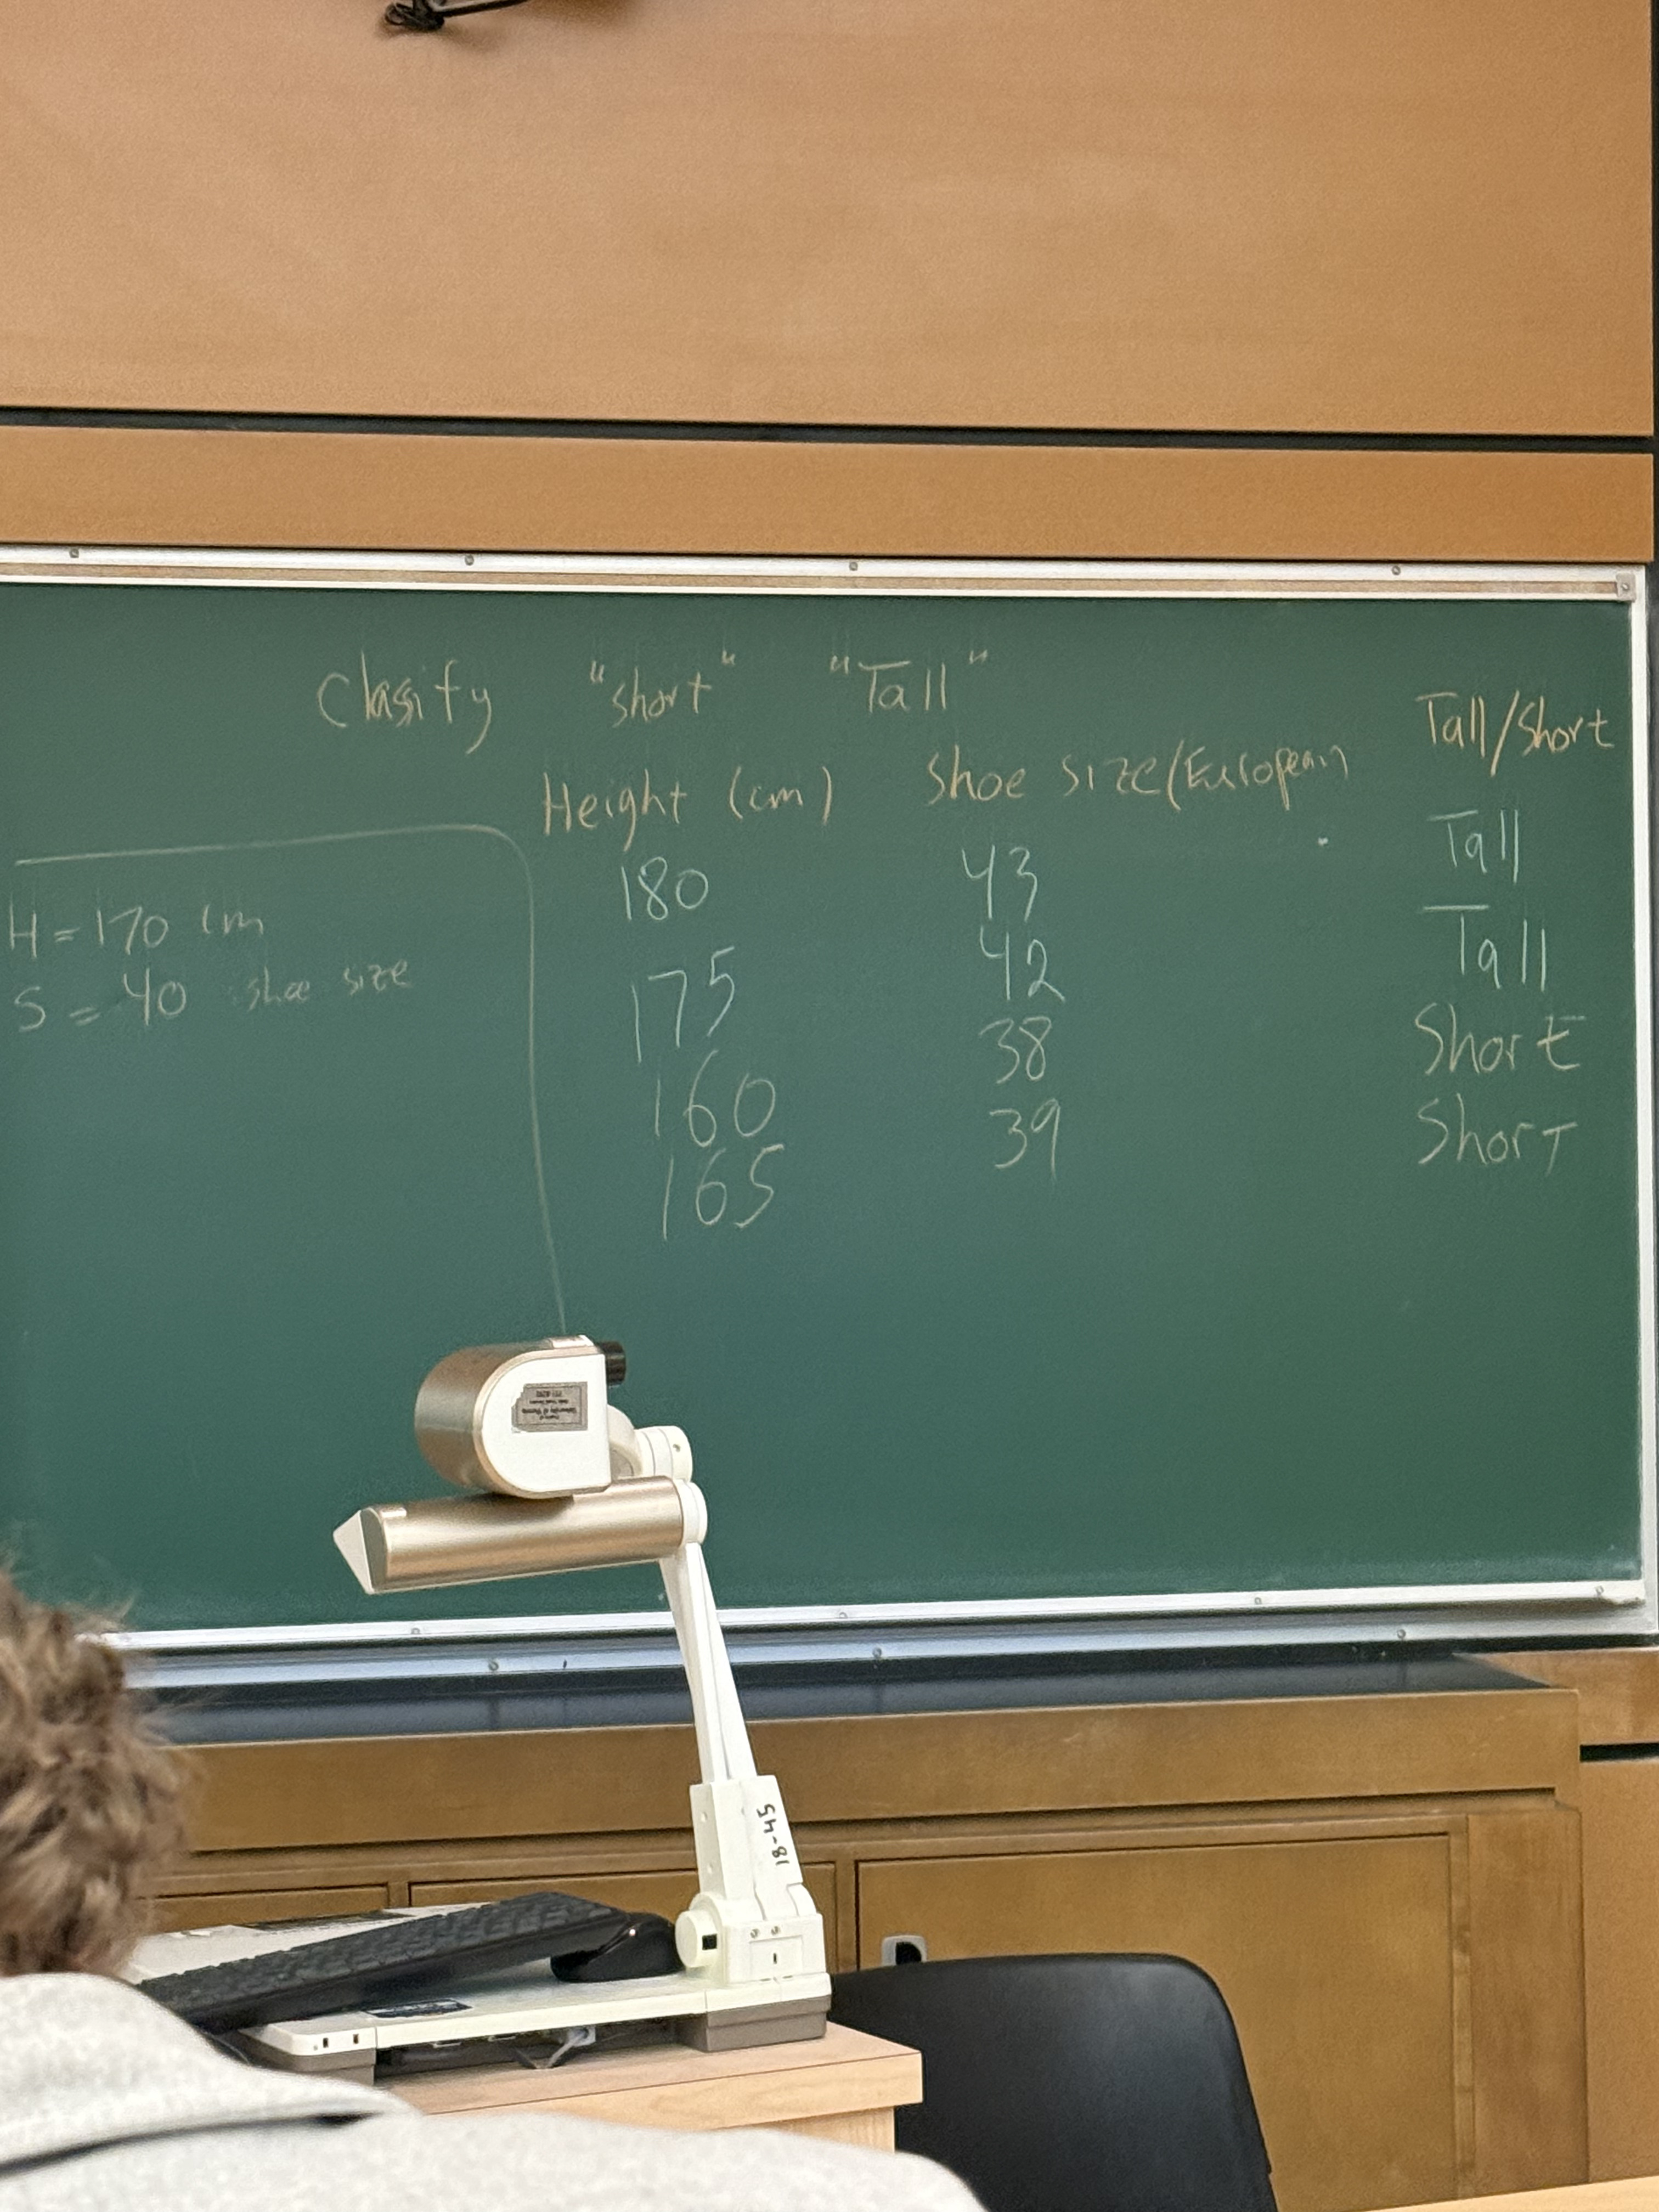 Classify "short" "Tall"
Height (cm) Shoe size (European) Tall/Short
180 43 Tall
175 42 Tall
160 38 Short
165 39 Short
H = 170 cm
S = 40 shoe size
18-45